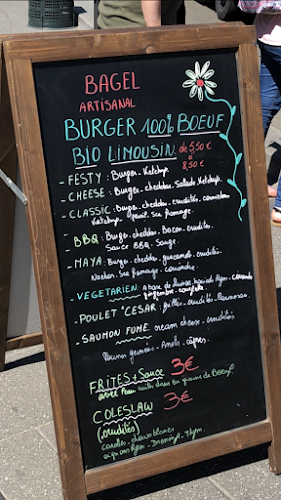 BAGEL
ARTISANAL
BURGER 100% BOEUF
BIO LIMOUSIN de 5,50€
à 8,50€
- FESTY : Burger - Ketchup.
- CHEESE : Burger - cheddar - Salade - Ketchup.
- CLASSIC : Burger - cheddar - crudités - cornichon
Ketchup - sce fromage.
- BBQ : Burger - cheddar - Bacon - crudités.
Sauce BBQ -
- MAYA : Burger - cheddar - guacamole - crudités -
sce fromage - coriandre.
- VEGETARIEN :
- POULET "CESAR : crudités - Parmesan.
- SAUMON FUMÉ : cream cheese - crudités.
Aneth - câpres.
FRITES + Sauce 3€
COLESLAW 3€
(crudités)
carottes - choux blancs
oignons - Thym.